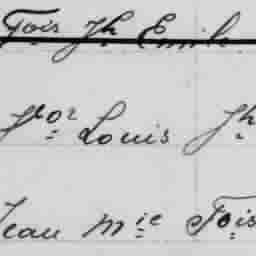 Fois Jh Emile
Flor Louis Jh
Jean Mie Fois